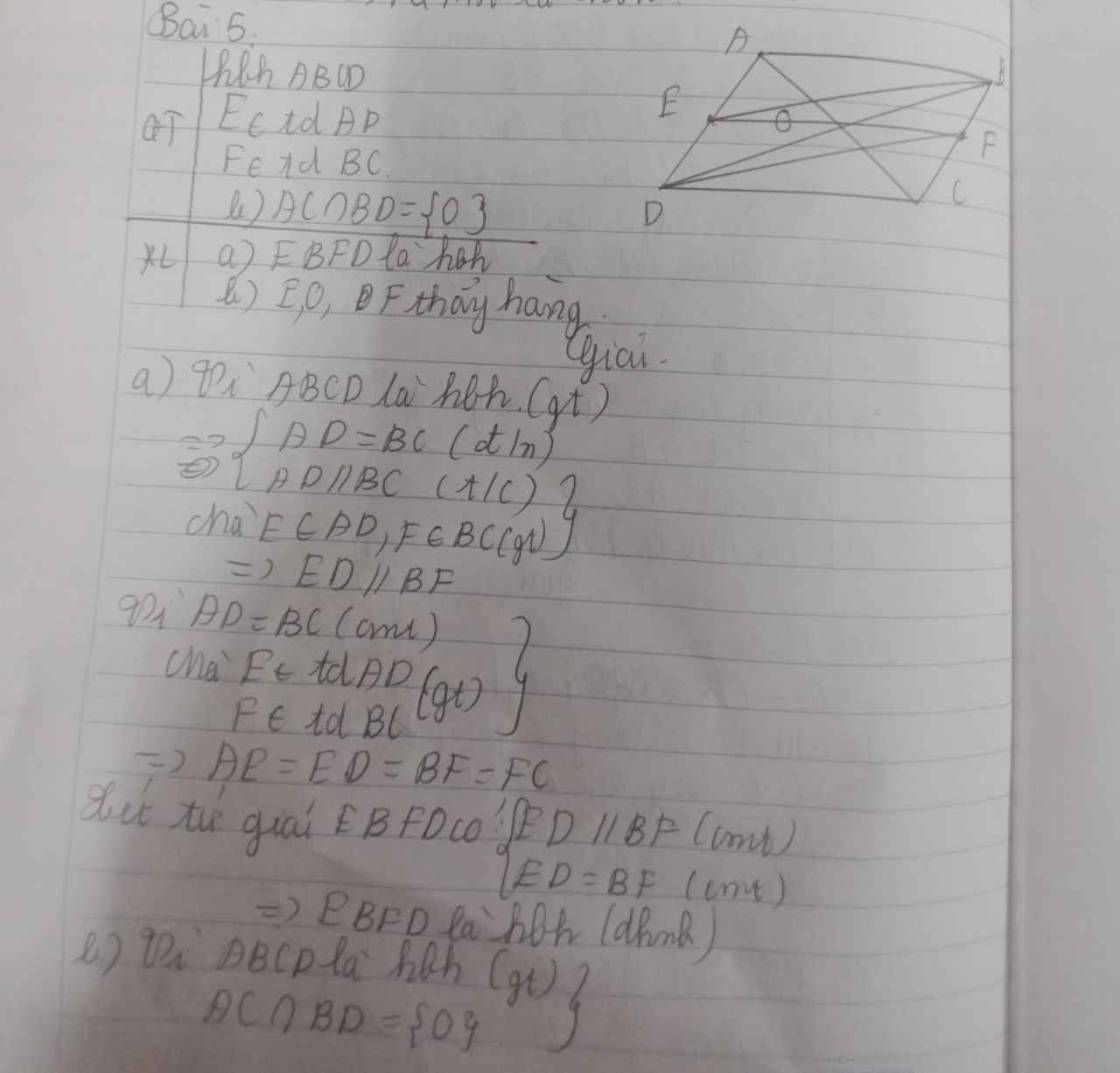 Bài 5.
A
B
E
O
F
D
C
GT
hbh ABCD
E ∈ td AD
F ∈ td BC.
b) AC∩BD={O}
KL
a) EBFD là hbh
b) E,O, F thẩy hàng.
Giải.
a) Vì ABCD là hbh.(gt)
=> { AD=BC (đ/n)
AD//BC (t/c) }
mà E∈AD, F∈BC(gt)
=> ED // BF
Vì AD=BC(cmt)
mà E∈ td AD (gt)
F∈ td BC
=> AE = ED = BF = FC
Xét tứ giái EBFD có: { ED // BF (cmt)
ED = BF (cmt)
=> EBFD là hbh (dhnb)
b) Vì ABCD là hbh (gt) }
AC∩BD={O}